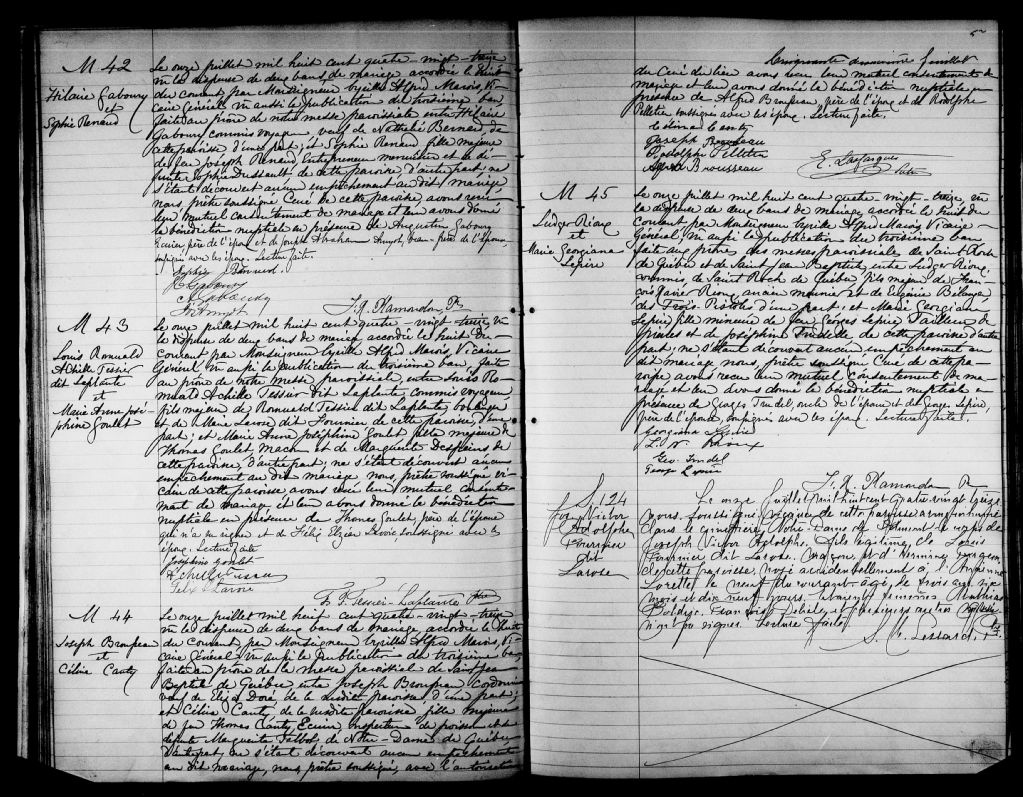 M 42
Hilaire Gaboury
et
Sophie Renaud
Le onze juillet mil huit cent quatre-vingt-treize
vu la dispense de deux bans de mariage accordée le huit
du courant par Monseigneur Cyrille Alfred Marois, Vi-
caire Général vu aussi la publication du troisième ban,
faite au prône de notre messe paroissiale entre Hilaire
Gaboury commis voyageur, veuf de Nathalie Bernard, de
cette paroisse d'une part; et Sophie Renaud fille majeure
de feu Joseph Renaud Entrepreneur menuisier et de dé-
funte Sophie Dussault de cette paroisse d'autre part; ne
s'étant découvert aucun empêchement au dit mariage,
nous, prêtre soussigné Curé de cette paroisse avons reçu
leur mutuel consentement de mariage et leur avons donné
la bénédiction nuptiale en présence de Augustin Gaboury
Ecuier père de l'époux et de Joseph Abraham Amyot, beau-père de l'épouse,
soussignés avec les époux. Lecture faite.
Sophie Renaud
H Gaboury
A Gaboury
J A Amyot
F. H. Plamondon Ptre
M 43
Louis Romuald
Achille Tessier
dit Laplante
et
Marie Anne José-
phine Goulet
Le onze juillet mil huit cent quatre-vingt-treize vu
la dispense de deux bans de mariage accordée le huit du
courant par Monseigneur Cyrille Alfred Marois, Vicaire
Général vu aussi la publication du troisième ban, faite
au prône de notre messe paroissiale, entre Louis Ro-
muald Achille Tessier dit Laplante, commis voyageur
fils majeur de Romuald Tessier dit Laplante, boulanger
et de Marie Larose dit Fournier de cette paroisse, d'une
part; et Marie Anne Joséphine Goulet fille majeure de
Thomas Goulet, maçon et de Marguerite Desfoins de
cette paroisse, d'autre part, ne s'étant découvert aucun
empêchement au dit mariage nous, prêtre soussigné vi-
caire de cette paroisse avons reçu leur mutuel consente-
ment de mariage et leur avons donné la bénédiction
nuptiale en présence de Thomas Goulet, père de l'épouse
qui n'a su signer et de Félix Elzéar Lavoie, soussigné avec les
époux. Lecture faite
Joséphine Goulet
Achille Tessier
Félix E Lavoie
F. F. Tessier-Laplante Ptre
M 44
Joseph Brousseau
et
Célina Canty
Le onze juillet mil huit cent quatre-vingt-treize
vu la dispense de deux bans de mariage accordée le huit
du courant par Monseigneur Cyrille Alfred Marois, Vi-
caire Général vu aussi la publication du troisième ban
faite au prône de la messe paroissiale de Saint Jean
Baptiste de Québec entre Joseph Brousseau Cordonnier
veuf de Eliza Doré de la susdite paroisse d'une part;
et Célina Canty de la susdite paroisse fille majeure
de feu Thomas Canty, Ecuier Inspecteur de poisson et de
défunte Marguerite Talbot de Notre-Dame de Québec
d'autre part ne s'étant découvert aucun empêchement
au dit mariage, nous, prêtre soussigné, avec l'autorisation
Cinquante deuxième feuillet
du Curé du lieu avons reçu leur mutuel consentement de
mariage et leur avons donné la bénédiction nuptiale en
présence de Alfred Brousseau, père de l'époux et de Rodolphe
Pelletier soussignés avec les époux. Lecture faite.
Célina Canty
Joseph Brousseau
Rodolphe Pelletier
Alfred Brousseau
Ptre
M 45
Ludger Rioux
et
Marie Georgiana
Lépine
Le onze juillet mil huit cent quatre-vingt-treize, vu
la dispense de deux bans de mariage accordée le huit du
courant par Monseigneur Cyrille Alfred Marois Vicaire-
Général, vu aussi la publication du troisième ban
faite aux prônes des messes paroissiales de Saint Roch
de Québec et de Saint Jean Baptiste, entre Ludger Rioux,
commis, de Saint Roch de Québec fils majeur de Fran-
cois Xavier Rioux ancien meunier et de Eugénie Bélanger
de Trois Pistoles d'une part; et Marie Georgiana
Lépine, fille mineure de feu Georges Lépine Tailleur de
pierres et de Joséphine Trudelle de cette paroisse d'autre
part, ne s'étant découvert aucun empêchement au
dit mariage nous, prêtre soussigné Curé de cette pa-
roisse avons reçu leur mutuel consentement de ma-
riage et leur avons donné la bénédiction nuptiale en
présence de Georges Trudel, oncle de l'épouse et de Georges Lépine,
frère de l'épouse soussignés avec les époux. Lecture faite.
Georgiana Lépine
L. N. Rioux
Geo. Trudel
George Lépine
F. H. Plamondon Ptre
S. 124
Jos Victor
Adolphe
Fournier
dit
Larose
Le onze Juillet mil huit cent quatre vingt treize
nous, soussigné, vicaire de cette paroisse avons inhumé
dans le cimetière Notre-Dame de Belmont le corps de
Joseph Victor Adolphe, fils légitime, de Louis
Fournier dit Larose, maçon, et d'Hermine
de cette paroisse, noyé accidentellement à l'Ancienne
Lorette le neuf du courant âgé de trois ans six
mois et dix neuf jours. Etaient témoins Mathias
Bolduc, François
n'ont pu signer. Lecture faite